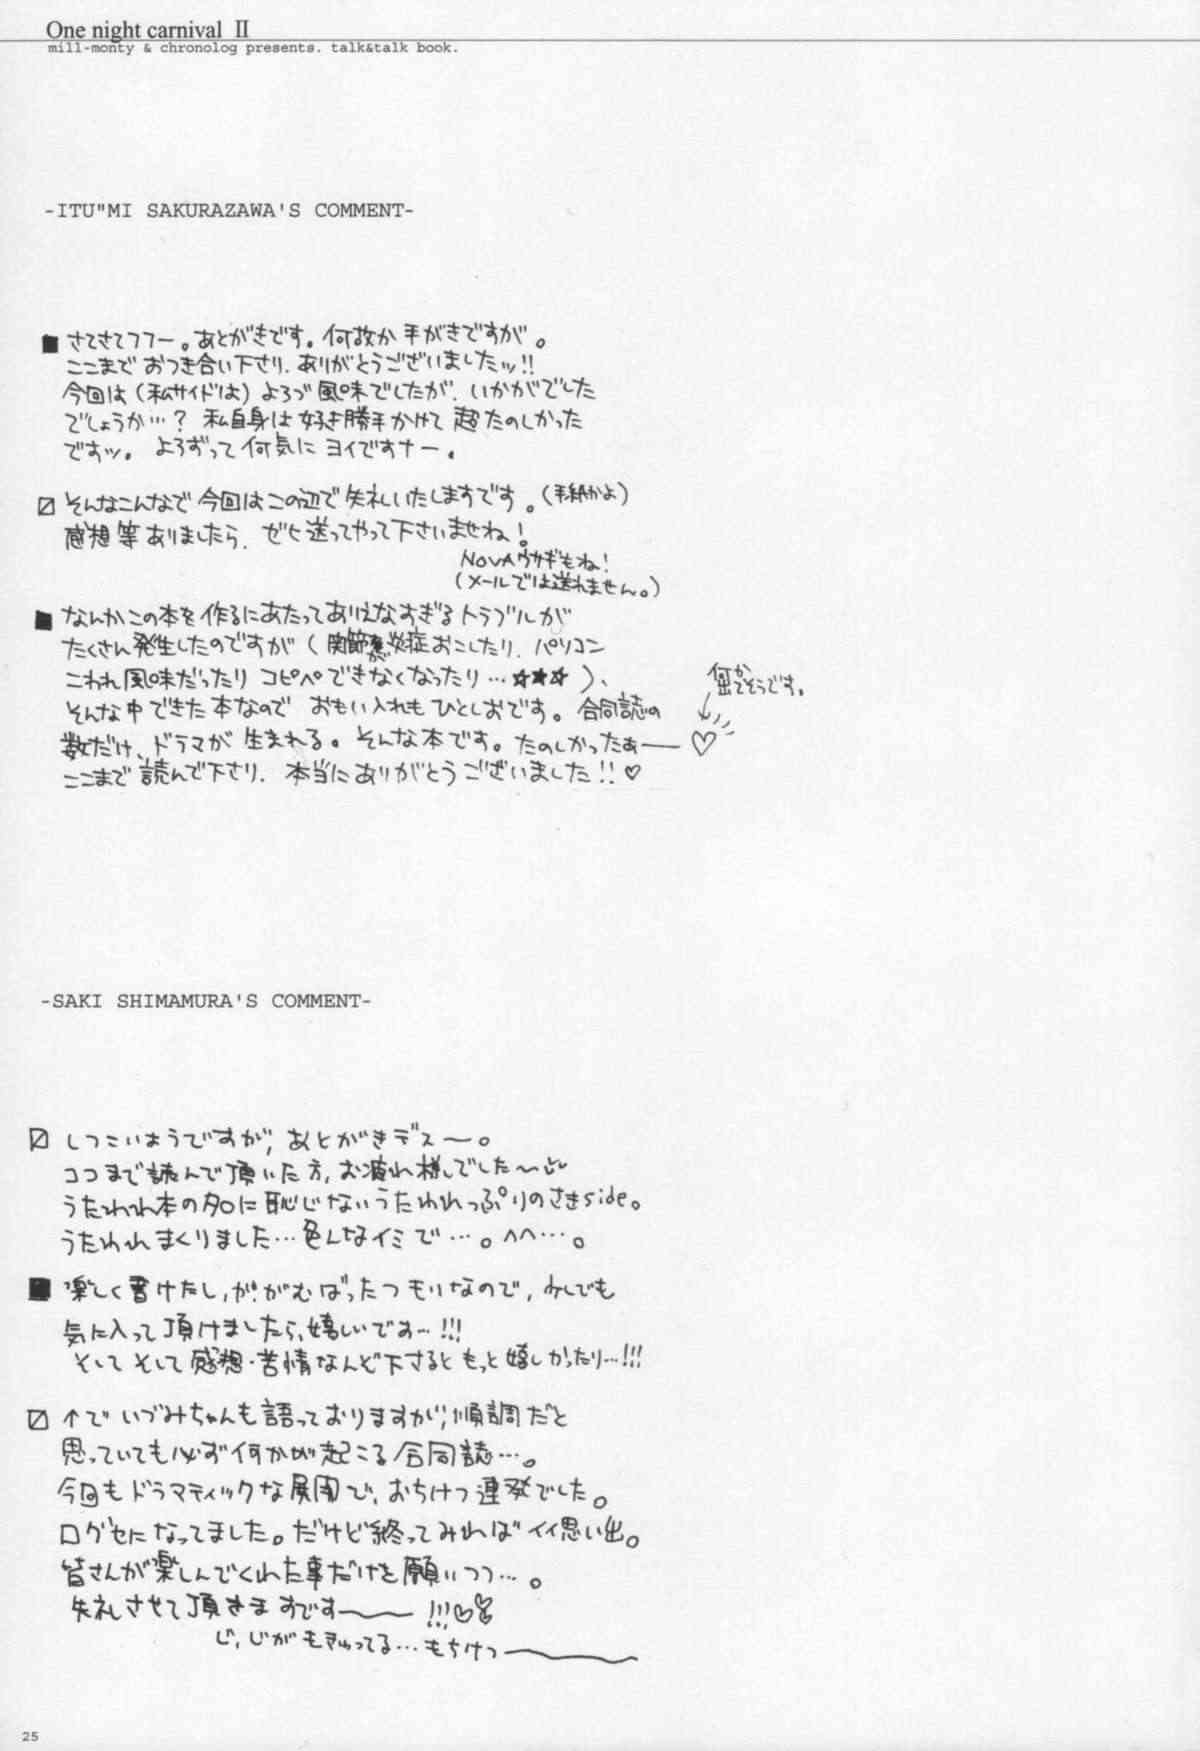 One night carnival Ⅱ
mill-monty & chronolog presents. talk&talk book.
-ITU"MI SAKURAZAWA'S COMMENT-
■ さてさてフフー。あとがきです。何故か手がきですが。
ここまでおつき合い下さり、ありがとうございましたッ!!
今回は(私サイドは)よろづ風味でしたが、いかがでした
でしょうか…? 私自身は好き勝手かけて超たのしかった
ですッ。よろずって何気にヨイですナー。
〼 そんなこんなで今回はこの辺で失礼いたしますです。(手紙かよ)
感想等ありましたら、ぜひ送ってやって下さいませね!
NOVAウサギもね!
(メールでは送れません。)
■ なんかこの本を作るにあたってありえなすぎるトラブルが
たくさん発生したのですが(関節炎症おこしたり、パソコン
こわれ風味だったりコピペできなくなったり…☆★☆)、
そんな中できた本なので おもい入れもひとしおです。合同誌の
数だけ、ドラマが生まれる。そんな本です。たのしかったぁー♡
何か
出てそうです。
ここまで読んで下さり、本当にありがとうございました!!♡
-SAKI SHIMAMURA'S COMMENT-
〼 しつこいようですが、あとがきデスー。
ココまで読んで頂いた方、お疲れ様でした〜
うたわれ本の名に恥じないうたわれっぷりのさきside。
うたわれまくりました…色んなイミで…。へへ…。
■ 楽しく書けたし、が!がむばったつもりなので、少しでも
気に入って頂けましたら、嬉しいです…!!!
そして そして感想・苦情なんど下さるともっと嬉しかったり…!!!
〼 ↑でいづみちゃんも語っておりますが、順調だと
思っていても必ず何かが起こる合同誌…。
今回もドラマティックな展開で、おちけつ連発でした。
口グセになってました。だけど終ってみればイイ思い出。
皆さんが楽しんでくれた事だけを願いつつ…。
失礼させて頂きますです〜!!!♡
じ、じがもきゅってる…もちけつ〜
25